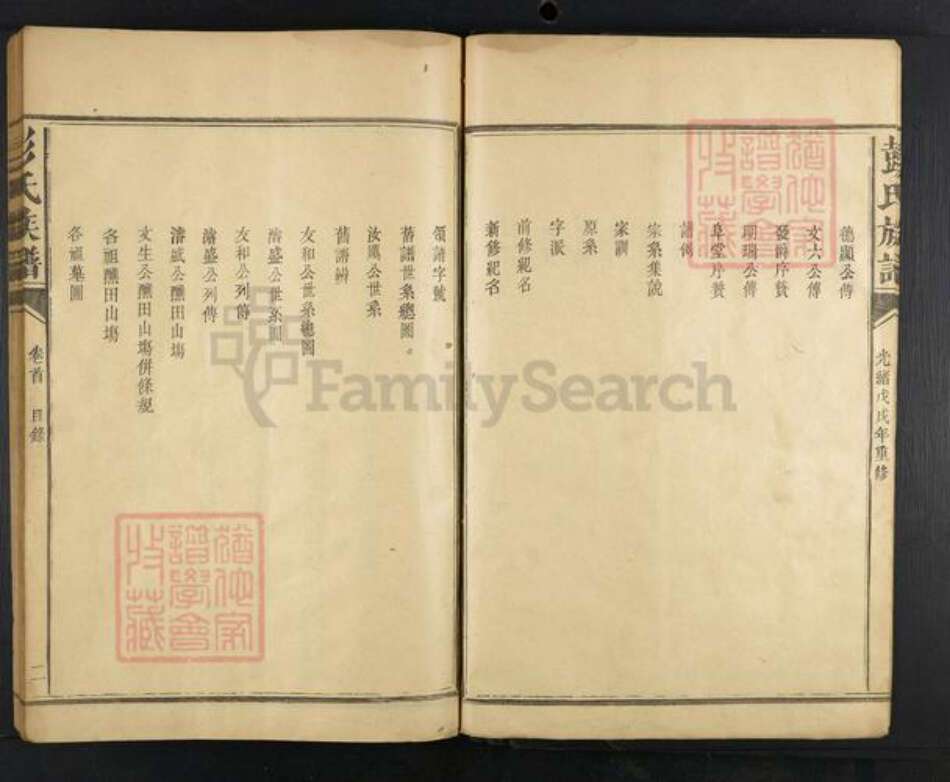 彭氏族譜
光緒戊戌年重修
德顯公傳
文六公傳
發辭序贊
珊瑚公傳
尊堂片贊
譜傳
宗系集說
家訓
原系
字派
前修紀名
新修紀名
領譜字號
舊譜世系總圖。
汝鳳公世系
舊譜辨
友和公世系總圖
濤盛公世系圖
友和公列傳
濤盛公列傳
濤盛公醮田山塲
文生公醮田山塲併條規
各祖醮田山塲
各祖墓圖
彭氏族譜
卷首
目錄
二
FamilySearch
譜學會
收藏
譜學會
收藏